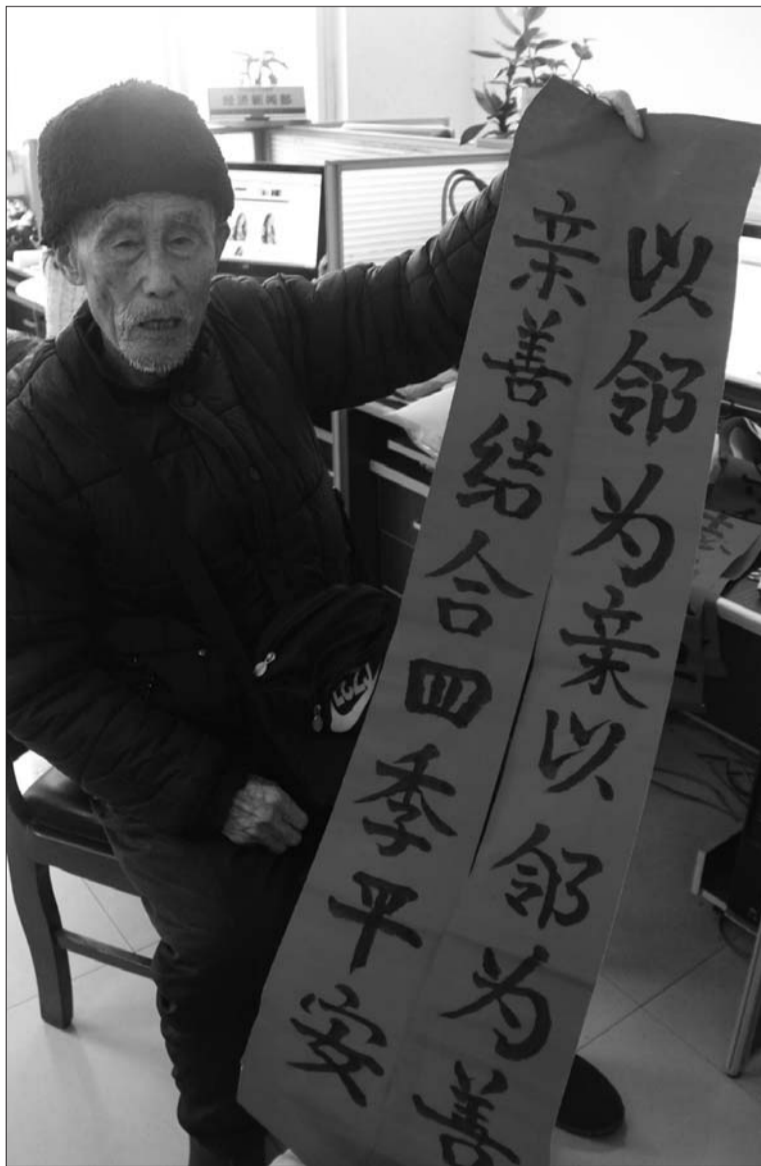 经济新闻部
以邻为亲以邻为善
亲善结合四季平安